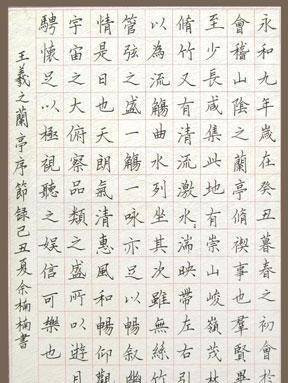 永和九年歲在癸丑暮春之初會於
會稽山陰之蘭亭脩禊事也羣賢畢
至少長咸集此地有崇山峻嶺茂林
脩竹又有清流激水湍映帶左右引
以為流觴曲水列坐其次雖無絲竹
管弦之盛一觴一詠亦足以暢敘幽
情是日也天朗氣清惠風和暢仰觀
宇宙之大俯察品類之盛所以遊目
騁懷足以極視聽之娛信可樂也
王羲之蘭亭序節錄己丑夏余楠楠書